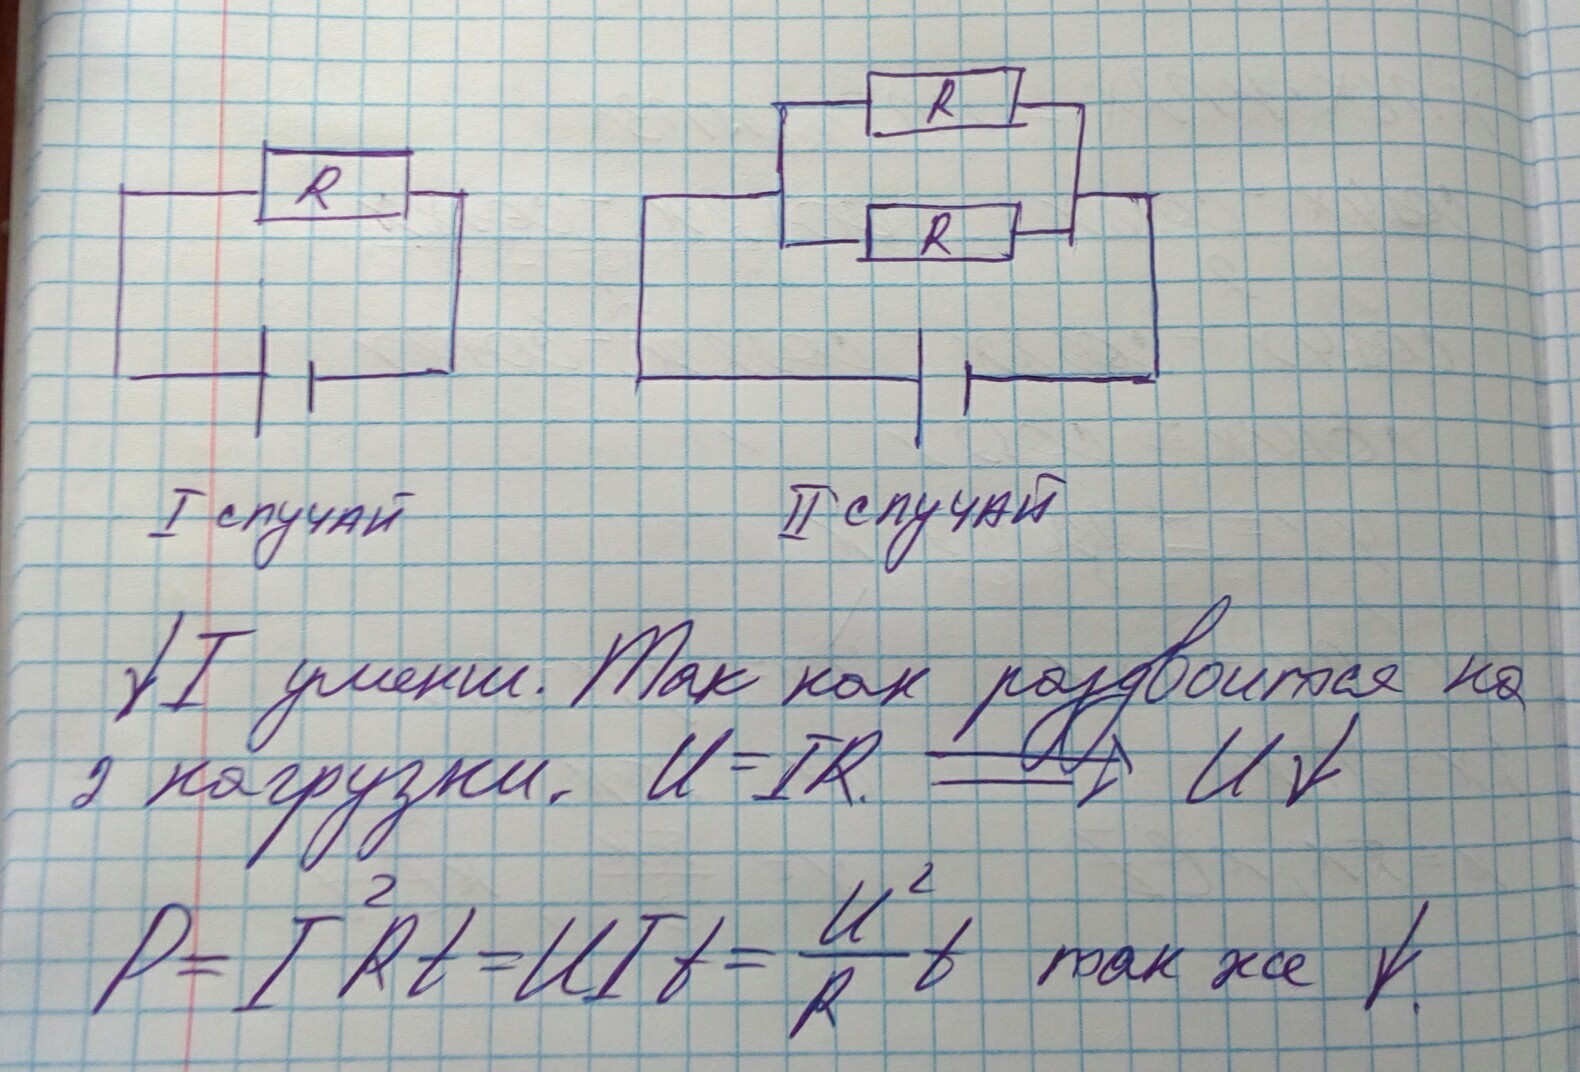 R
R
R
I случай
II случай
↓I уменш. Так как раздвоится на
2 нагрузки. U=IR. ⟹ U↓
P= I²Rt=UIt= U²/R t так же ↓.